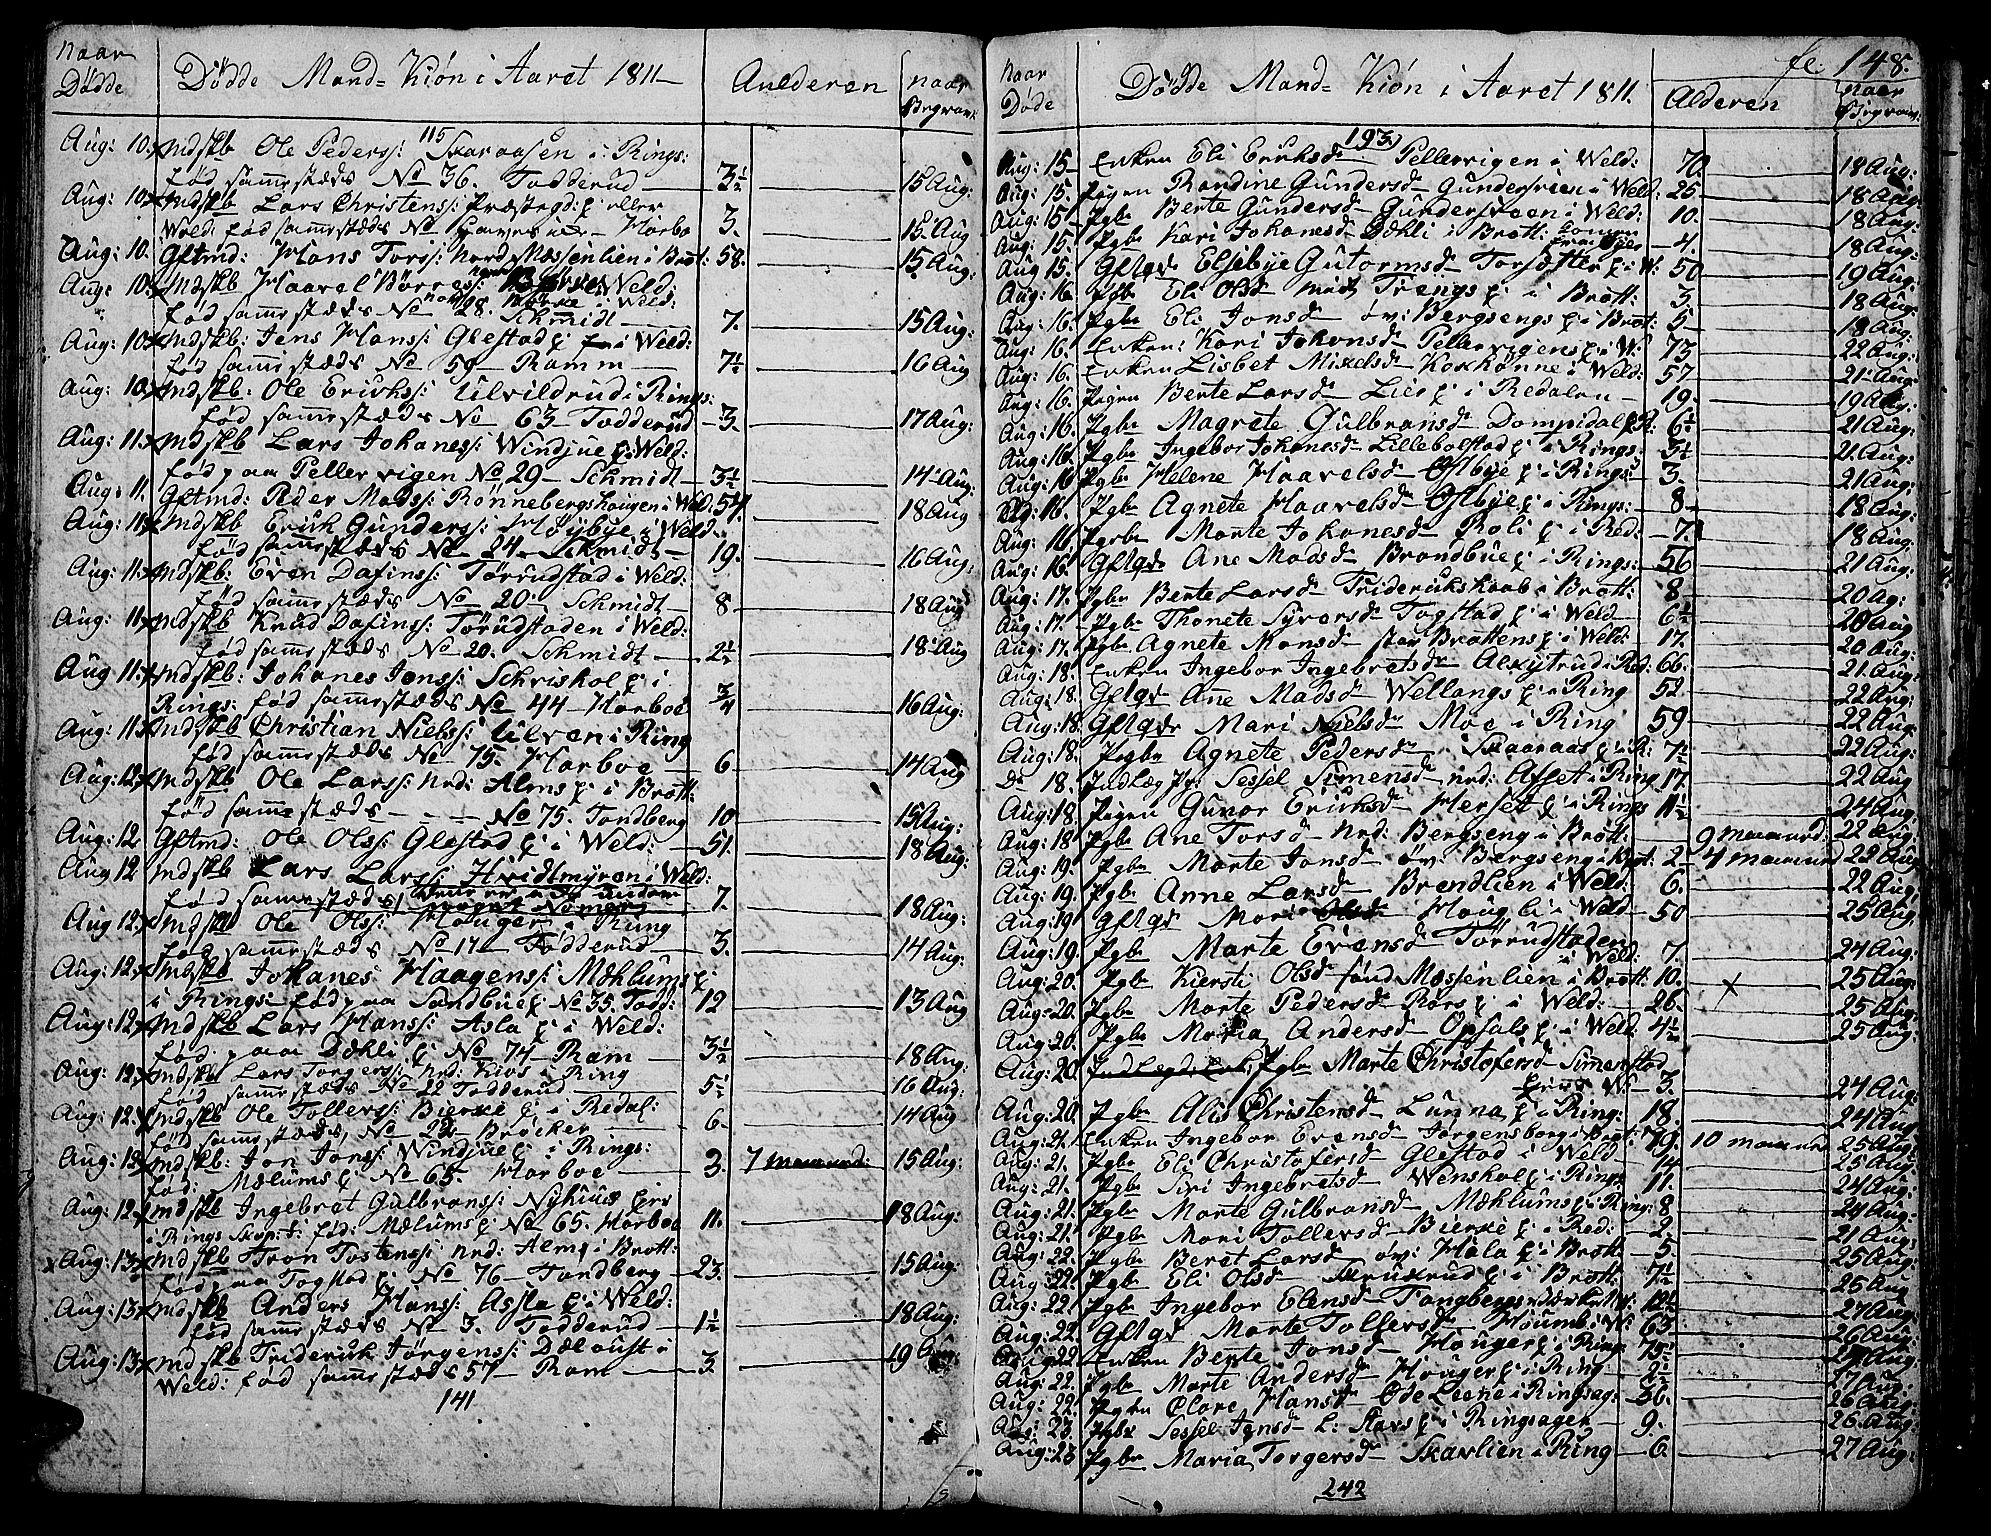 Naar Dödde | Dödde Mand= Kiøn i Aaret 1811 | Aulderen | naar Begravt
115
Aug: 10. Mdskb Ole Peders: Skaraasen i Rings:
fød sammestæds No 36. Todderud 3½ 15 Aug:
Aug: 10. Mdskb Lars Christens: Præstegd: eller
Weld: fød sammestæds No Horboe 3. 15 Aug
Aug: 10. Gftmd: Hans Tors: Nord Mæssenlien i Brøt: 58. 15 Aug:
Aug: 10. Mdskb Haavel Børres: Weld:
fød sammestæds No 28. Schmidt 7. 15 Aug:
Aug: 10. Mdskb: Jens Hans: Glestad i Weld:
fød sammestæds No 59 Ramm 7½ 16 Aug
Aug: 10. Mdskb: Ole Ericks: Ulvildrud i Rings:
fød sammestæds No 63 Todderud 3. 17 Aug:
Aug: 11. Mdskb Lars Johanes: Windjue i Weld:
fød paa Pellervigen No 29 Schmidt 3½ 14 Aug:
Aug: 11. Gftmd: Peder Mads: Rønnebergshaugen i Weld: 54. 18 Aug
Aug: 11. Mdskb Erik Gunders: Høybye i Weld:
fød sammestæds No 24 Schmidt 19. 16 Aug:
Aug: 11. Mdskb: Even Dafins: Tørrudstad i Weld:
fød sammestæds No 20 Schmidt 8 18 Aug
Aug: 11. Mdskb Knud Dafins: Törudstaden i Weld:
fød sammestæds No 20. Schmidt 2½ 18 Aug
Aug 11. Mdskb: Johanes Jens: Schriskol i
Rings: fød sammestæds No 44 Horboe ¾ 16 Aug:
Aug: 11. Mdskb Christian Niels: Ulven i Ring
fød sammestæds No 75. Horboe 6 14 Aug
Aug: 12. Mdskb Ole Lars: nrd: Alms i Brøt:
fød sammestæds No 75. Tondberg 10 15 Aug:
Aug: 12 Gftmd: Ole Ols: Glestad i Weld: 51. 18 Aug:
Aug 12 Mdskb Lars Lars: Hvidtmyren i Weld:
fød sammestæds 7. 18 Aug:
Aug: 12. Mdskb Ole Ols: Houger i Ring
fød sammestæds No 17 Todderud 3. 14 Aug:
Aug: 12. Mdskb Johanes Haagens: Mæhlums
i Rings: fød paa Sandbue No 35. Todd: 12 13 Aug
Aug: 12. Mdskb Lars Hans: Asla i Weld:
fød paa Dæhli No 74 Ram 3½ 18 Aug:
Aug: 12. Mdskb Lars Torgers: nrd: Kios i Ring
fød sammestæds No 22 Todderud 5½ 16 Aug:
Aug: 12. Mdskb Ole Tollers: Bierke i Redal:
fød sammestæds, No 22 Brøcker 6 14 Aug
Aug: 12. Mdskb: Jon Jons: Windjue i Rings:
fød: Mælums No 65. Horboe 3. 7 maaned: 15 Aug:
Aug: 12. Mdskb Ingebrat Gulbrans: Nyhuus
i Rings fød: Mælums No 65. Horboe 11. 18 Aug:
Aug: 13. Mdskb Tron Tostens: nrd: Alm i Brøtt:
fød paa Togstad No 76 Tondberg 23. 15 Aug:
Aug: 13. Mdskb Anders Hans: Assla i Weld:
fød sammestæds No 3. Todderud 1½ 18 Aug:
Aug: 13. Mdskb Friderick Jørgens: Dæloust i
Weld: fød sammestæds 57 Ram 3. 19 Aug:
141
fl: 148.
naar Døde | Dödde Mand= Kiön i Aaret 1811. | Alderen | Naar Begrav:
193
Aug: 15 Enken Eli Ericksd Pellervigen i Weld: 70. 18 Aug:
Aug: 15. Pigen Randine Gundersd Gundersveen i Weld: 25 18 Aug:
Aug: 15 Pgbr Berte Gundersd Gundersveen i Weld: 10. 18 Aug:
Aug: 15. Pgbr Kari Johanesd Dæhli i Brøt: 4. 18 Aug:
Aug 15. Gftqd Elsebye Gutormsd Torsætter i W: 50 19 Aug:
Aug: 16. Pgbr Eli Olsd Trengs i Brøtt: 3. 18 Aug:
Aug: 16. Pgbr Eli Jonsd øv: Bergsengs i Brøt: 5 18 Aug:
Aug: 16. Enken: Kari Johansd Pellervigens i W: 73 22 Aug:
Aug: 16. Enken Lisbet Mikelsd Koxhønne i Weld: 57 21 Aug:
Aug: 16. Pigen Berte Larsd Lier i Redalen 19. 19 Aug:
Aug: 16. Pgbr Magrete Gulbransd Dompidal R: 6½ 21 Aug:
Aug: 16. Pgbr Ingebor Johanesd Lillebolstad i Rings: 3½ 21 Aug:
Aug: 16 Pgbr Helene Haavelsd Østbye i Rings: 3. 21 Aug:
Aug: 16. Pgbr Agnete Haavelsd Østbye i Rings: 8 18 Aug:
Aug: 16 Pgbr Marte Johanesd Roli i Red: 7. 18 Aug:
Aug: 16. Gftqd Ane Madsd Brandbue i Rings: 56 21 Aug:
Aug: 17. Pgbr Berte Larsd Friderikskaab i Brøtt: 8 20 Ag:
Aug: 17. Pgbr Thonete Syversd Togstad i Weld 6½ 20 Aug
Aug: 17. Pgbr Agnete Monsd stor Brøttens i Weld: 17. 20 Aug:
Aug: 18. Enken Ingebor Ingebretsd Alxytrud i Red: 66. 21. Aug:
Aug: 18. Gftqd Ane Madsd Wellangs i Ring 52 22 Aug:
Aug: 18. Gftqd Mari Nielsd Moe i Ring 59 22 Aug:
Aug: 18. Pgbr Agnete Pedersd Skaaraas i R: 7½ 22 Aug:
Do 18. Indlæg Pg: Sessel Simensd nrd: Asset i Ring 17. 22 Aug
Aug: 18. Pigen Gunor Ericksd Herset i Rings 11½ 24 Aug:
Aug: 18 Pgbr Ane Torsd Nrd: Bergseng i Brøtt: 9 maaned: 22 Aug:
Aug: 19. Pgbr Marte Jonsd øv: Bergseng i Brøt: 2 4 maaned 22 Aug
Aug: 19. Pgbr Anne Larsd Brendlien i Weld: 6. 22 Aug:
Aug: 19 Gftqd Mari Olsd Hougli i Weld 50 25 Aug:
Aug: 19. Pgbr Marte Evensd Tørrudstaden
i Weld: 7. 24 Aug:
Aug: 20. Pgbr Kiersti Olsd sønd Mæssenlien i Brøtt: 10. x 25 Aug:
Aug: 20. Pgbr Marte Pedersd Rørs i Weld: 26. 25 Aug:
Aug: 20. Pgbr Maria Andersd Opsals i Weld 4½ 25 Aug:
Aug: 20. Pgbr Marte Christofersd Simenstad
3. 24 Aug:
Aug: 20. Pgbr Alis Christensd Lunna i Ring: 18. 24 Aug:
Aug: 21. Enken Ingebor Evensd Jørgensborg i Brøt: 79. 10 maaned 25 Aug:
Aug: 21. Pgbr Eli Christofersd Glestad i Weld 14 25 Aug:
Aug: 21. Pgbr Siri Ingebretsd Wenskol i Rings 11. 24 Aug:
Aug: 21. Pgbr Marte Gulbransd Mæhlums i Ring: 8 24 Aug:
Aug: 21. Pgbr Mari Tollersd Bierke i Red: 2. 21 Aug:
Aug: 22. Pgbr Beret Larsd øv: Hala i Brøtt 5. 25 Aug:
Aug: 22. Pgbr Eli Olsd Skruxrud i Brøtt: 7½ 26 Aug
Aug: 22. Pgbr Ingebor Elensd Tongbergs 12½ 27 Aug:
Aug: 22. Gftqd Marte Tollersd Houmb W: 63. 26 Aug:
Aug 22 Enken Bente Jonsd Houger i Rings 75½ 27 Aug:
Aug: 22. Pgbr Marte Andersd Houger i Ring 2½ 27 Aug:
Aug: 22. Pigen Olave Hansd Øde Leene i Ringsag: 36. 26 Aug:
Aug: 23. Pgbr Sessel Jonsd L: Stavs i Ringsager 9. 26. Aug:
Aug: 23 Pgbr Maria Torgersd Skavlien i Ring 6. 27 Aug:
242